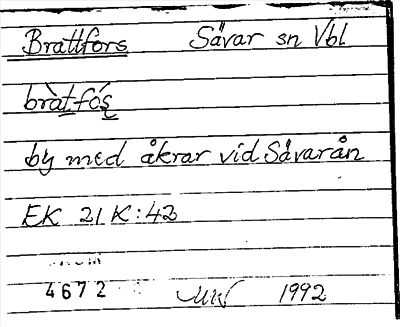 Brattfors Sävar sn Vbl
bràtfós
by med åkrar vid Sävarån
EK 21 K:42
4672 1992